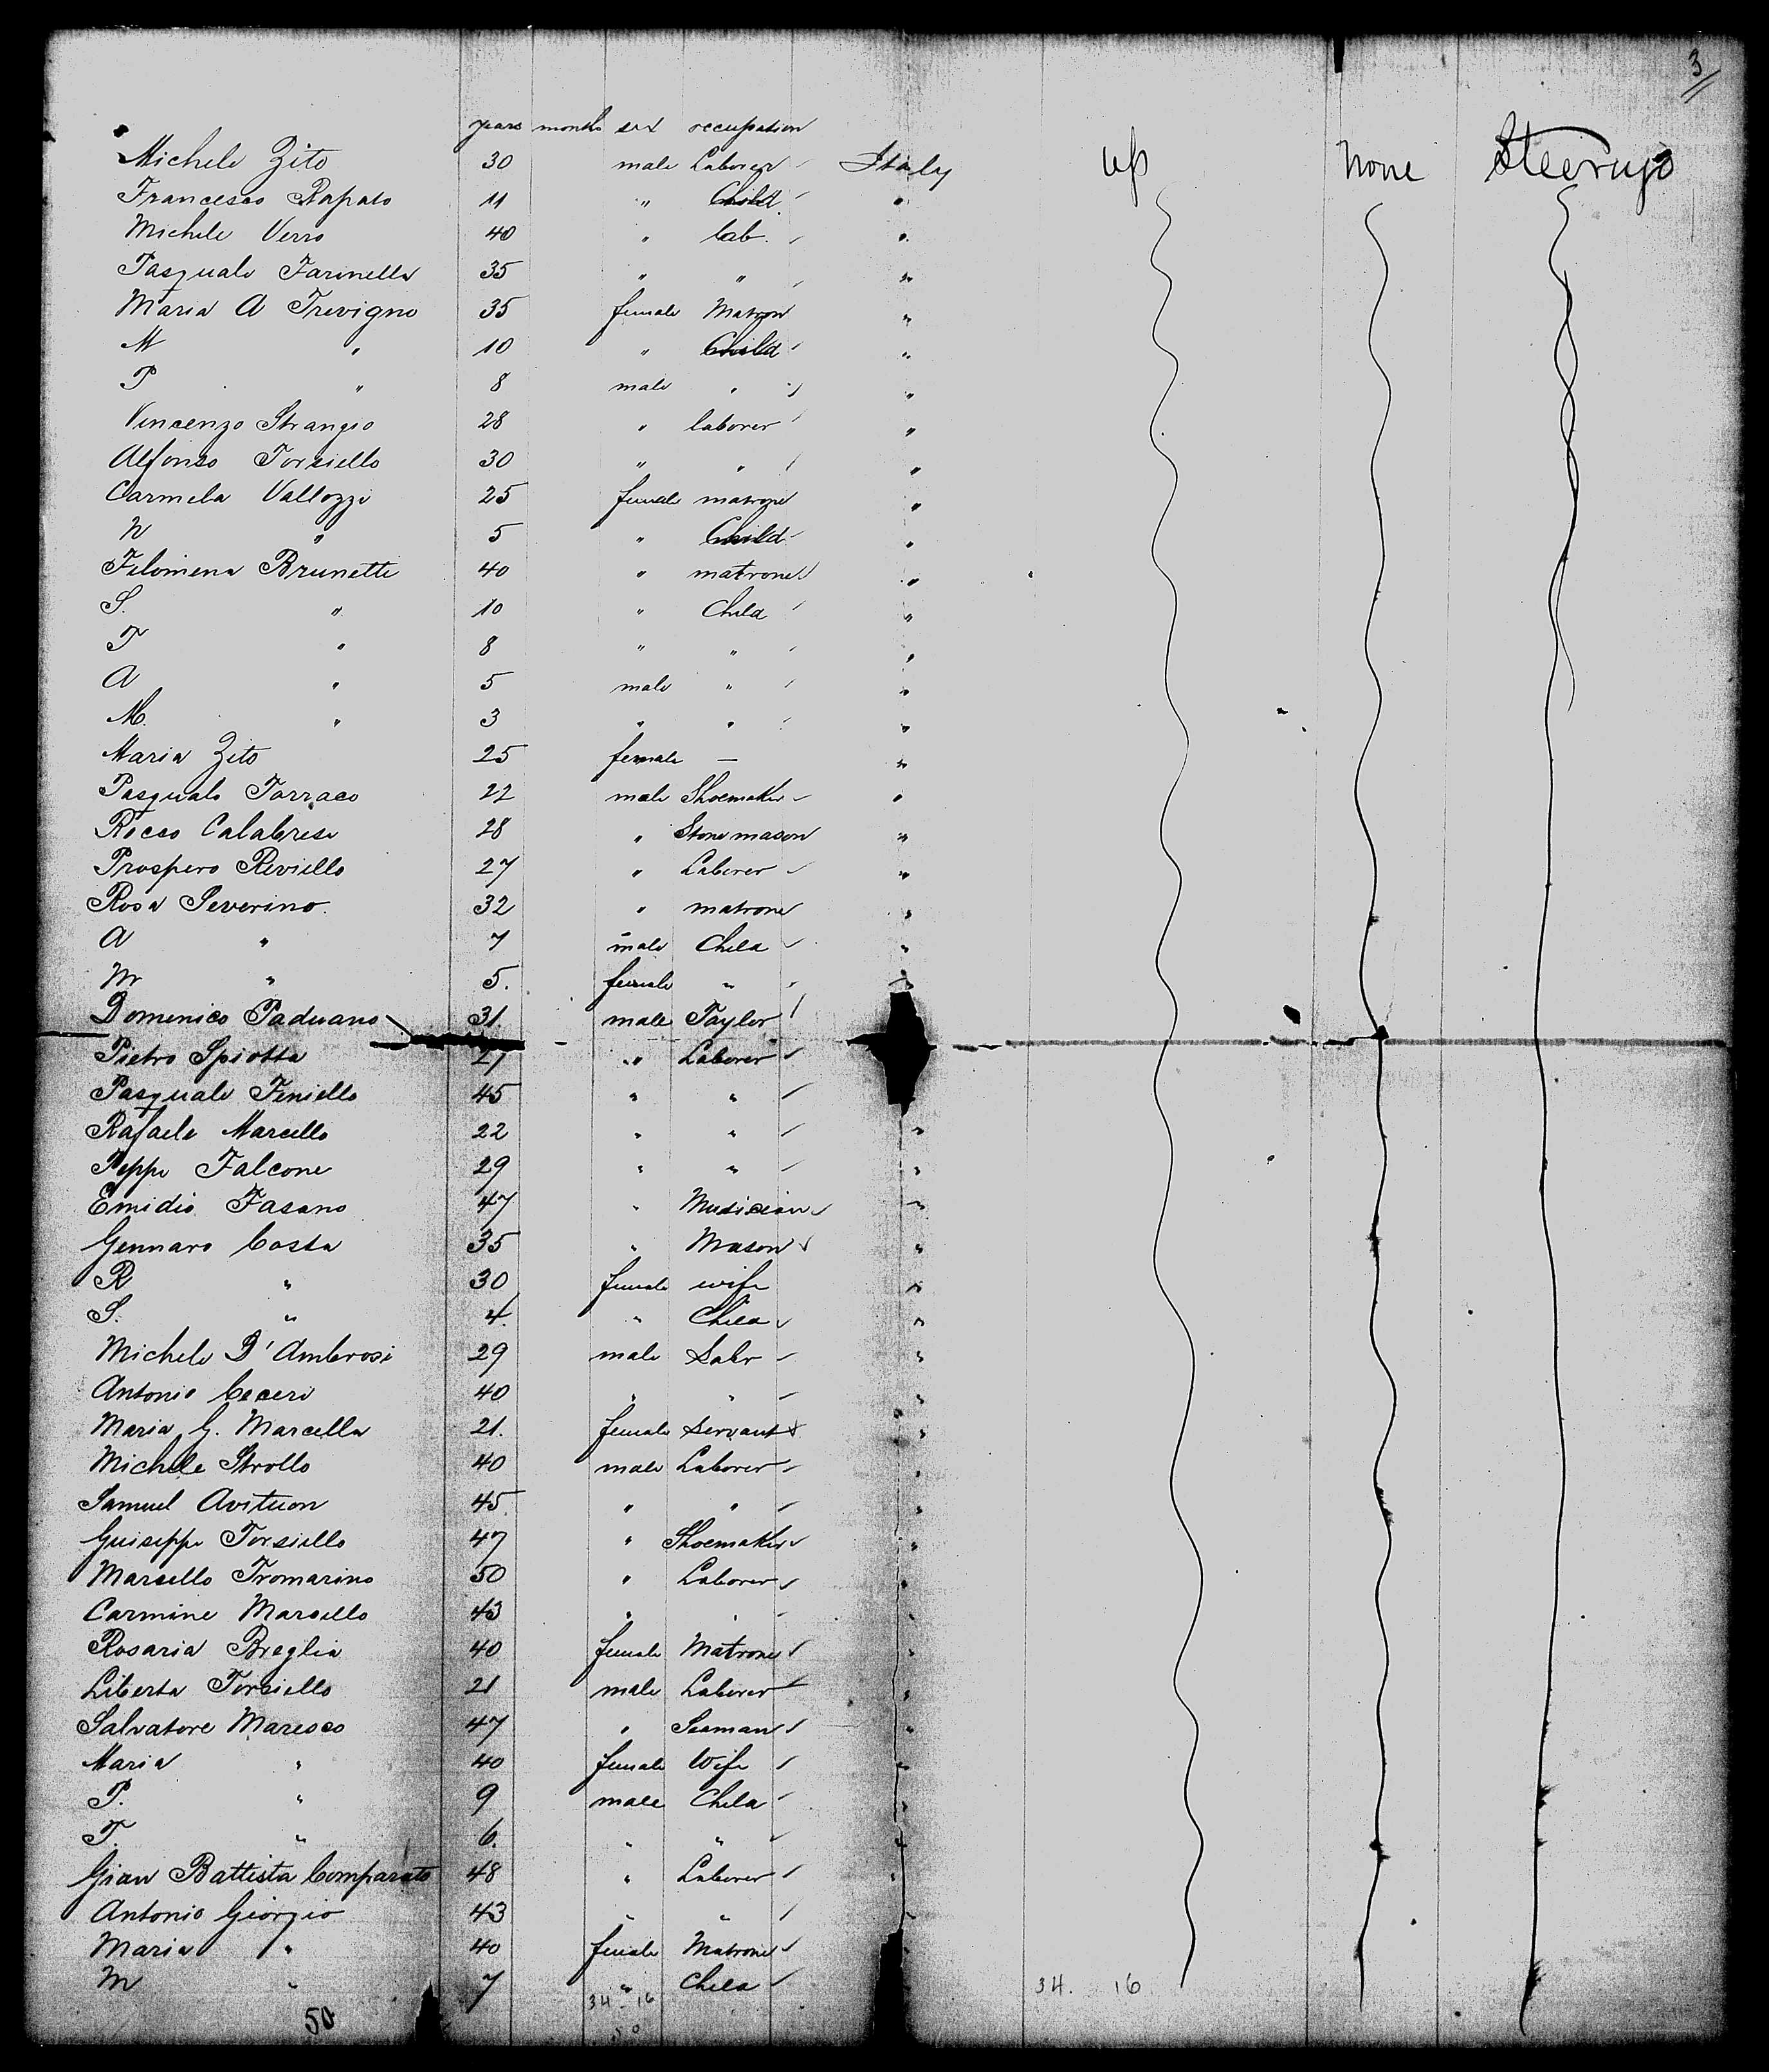 3
years months sex occupation
Michele Zito 30 male Laborer Italy US None Steerage
Francesco Rapato 11 " Child "
Michele Verro 40 " lab. "
Pasquale Farinella 35 " " "
Maria A Trevigno 35 female Matron "
M " 10 " Child "
P " 8 male " "
Vincenzo Strangio 28 " laborer "
Alfonso Torsiello 30 " " "
Carmela Vallozzi 25 female matrone "
N " 5 " Child "
Filomena Brunetti 40 " matrone "
S. " 10 " Child "
T " 8 " " "
A " 5 male " "
M. " 3 " " "
Maria Zito 25 female — "
Pasquale Torraco 22 male Shoemaker "
Rocco Calabrese 28 " Stone mason "
Prospero Reviello 27 " Laborer "
Rosa Severino 32 " matrone "
A " 7 male Child "
M " 5. female " "
Domenico Paduano 31. male Taylor
Pietro Spiotta 27 " Laborer
Pasquale Feniello 45 " "
Rafaele Marcello 22 " " "
Peppe Falcone 29 " " "
Emidio Fasano 47 " Musician "
Gennaro Costa 35 " Mason "
R " 30 female wife "
S. " 4. " Child "
Michele D'Ambrosi 29 male Labr "
Antonio Ceceri 40 " " "
Maria G. Marcella 21. female Servant "
Michele Strollo 40 male Laborer "
Samuel Avituon 45 " " "
Guiseppe Torsiello 47 " Shoemaker "
Marcello Tromarino 50 " Laborer "
Carmine Marcello 43 " " "
Rosaria Breglia 40 female Matrone "
Liberta Torsiello 21 male Laborer "
Salvatore Maresco 47 " Seaman "
Maria " 40 female Wife "
P. " 9 male Child "
T. " 6. " " "
Gian Battista Comparato 48 " Laborer "
Antonio Giorgio 43 " "
Maria " 40 female Matrone "
M " 7 " Child
50 34 - 16 34. 16
50